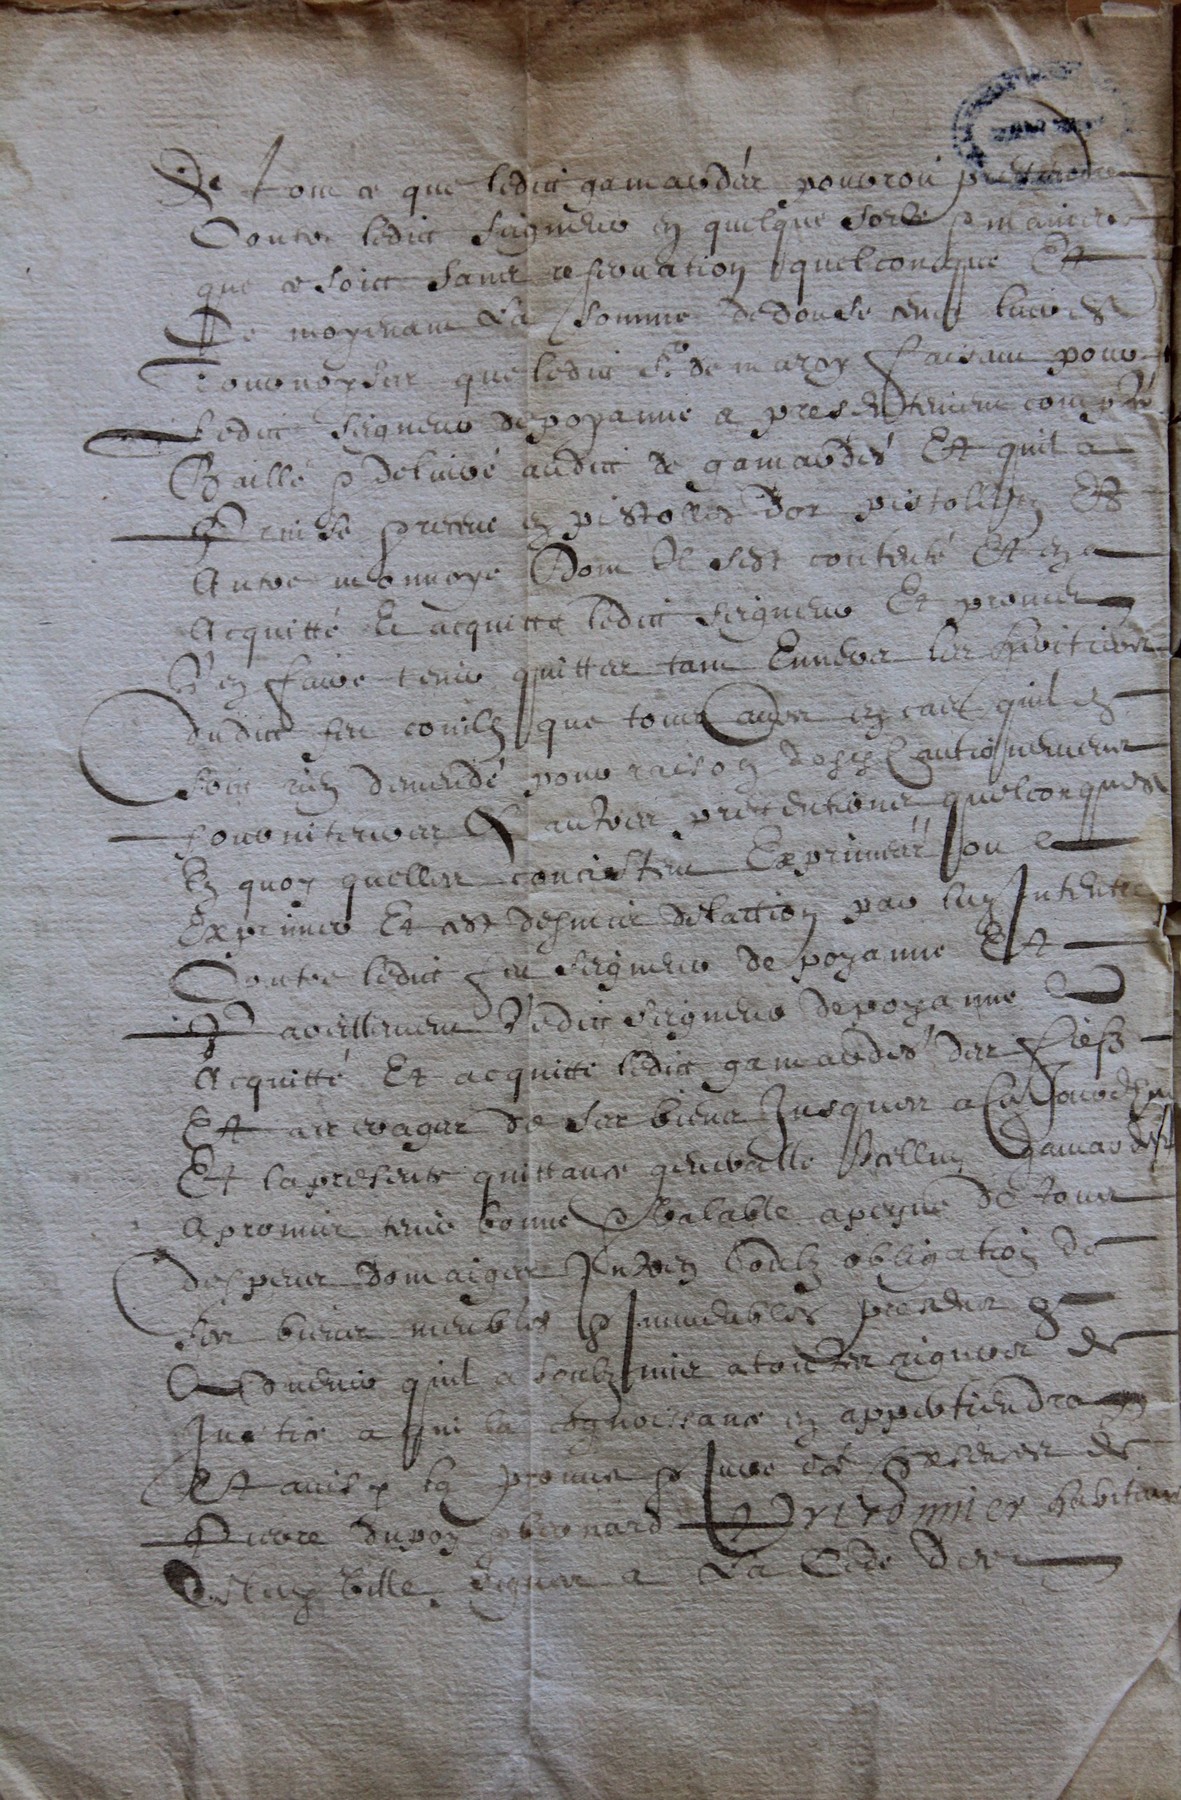 De tout ce que ledict gamardés pouvroit pretendre
Contre ledict seigneur en quelque sorte & maniere
que ce soict sans reservation quelconque Et
Ce moyenant La somme de douse cens livres
Tournoyses que ledict Sr de marsy faisant pour
ledict seigneur de poyanne a presentement compté
Baillé & delivré audict de gamardés Et quil a
Prinse & receue en pistolles dor pistolletz Et
Autre monnoye Dont Il sest contenté Et en a
Acquitté Et acquitte ledict seigneur Et promet
L en faire tenir quitte tant Envers les heritiers
dudict feu que tous autres en cas quil en
soict rien demendé pour raison desdictz cautionnemens
fournitures Et autres pretentions quelconques
En quoy quelles concistent Exprimées ou a
Exprimer Et est desmeu de laction par luy Intentée
Contre ledict feu seigneur de poyanne Et
Pareillement Ledict seigneur de poyanne a
Acquitté Et acquitte ledict gamardés des fiefz
Et arreyrages de ses biens Jusques a ce Jourdhuy
Et la presente quittance generalle Icelluy gamardés
A promis tenir bonne & valable a peyne de tous
despens domaiges Interestz soubz obligation de
ses biens meubles & Immeubles presens &
Advenir quil a soubzmis a toutes rigueurs de
Justice a qui la cognoissance en appertiendra
Et ainsy la promis & Jure es presences de
Pierre dupoy & bernard habitans
Dicelle ville signes a La Cede des